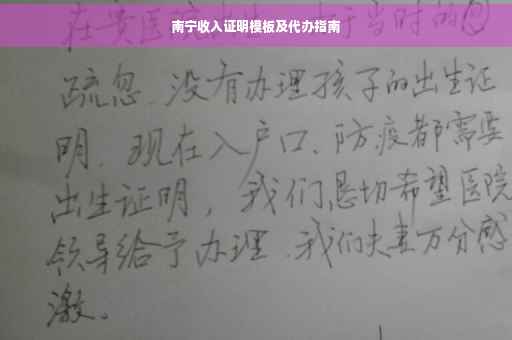 南宁收入证明模板及代办指南
在贵医院出生,由于当时的
疏忽,没有办理孩子的出生证
明、现在入户口、防疫都需要
出生证明,我们恳切希望医院
领导给予办理,我们夫妻万分感
激。